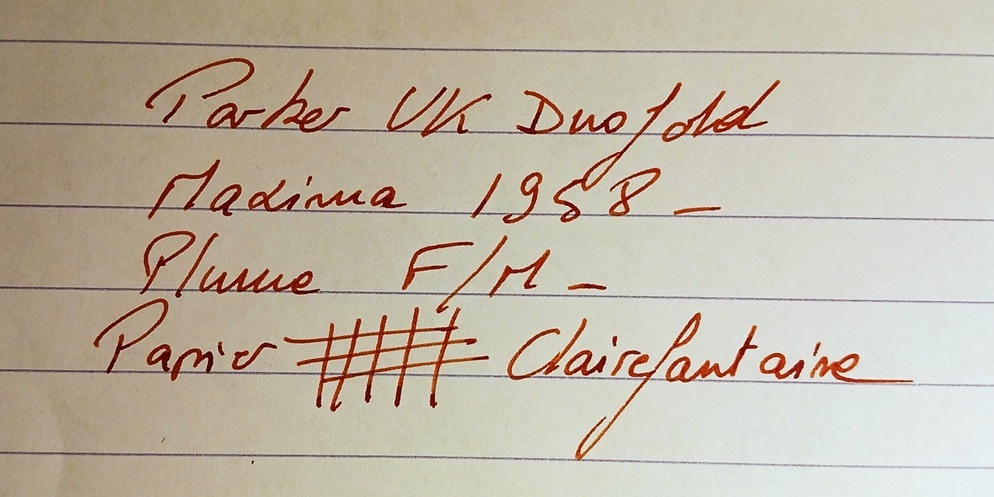 Parker UK Duofold
Maxima 1958 -
Plume F/M -
Papier Clairefontaine